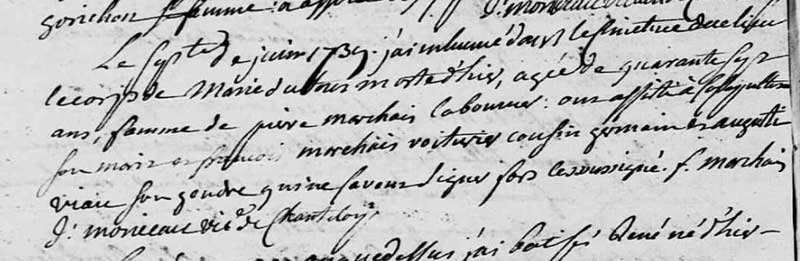 gorichon sa femme
Le sept de juin 1739. j'ai inhumé dans le simetiere de ce lieu
le corps de Marie dutour morte d'hier, agée de quarante sept
ans, famme de pierre marchais laboureur: ont assisté à sa sepulture
son mari et françois marchais voiturier cousin germain et auguste
viau son gendre qui ne savent signer fors le soussigné. f. marchais
J. moriceau vic. de Chanteloy
j'ai batisé René né d'hier